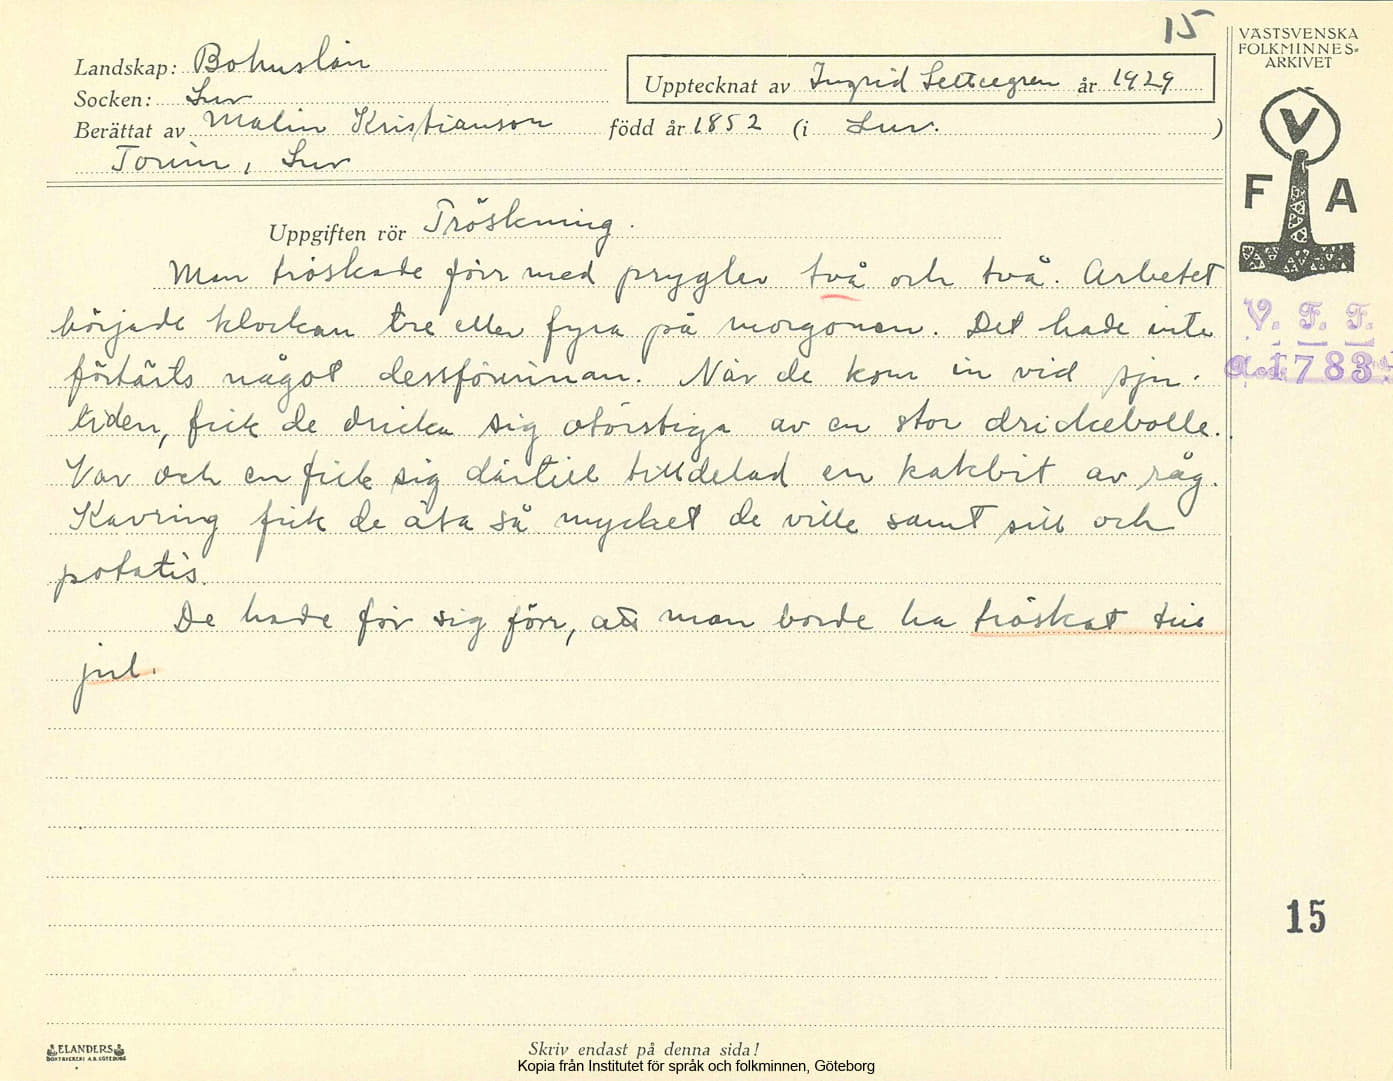 15
VÄSTSVENSKA
FOLKMINNES-
ARKIVET
Landskap: Bohuslän
Upptecknat av Ingrid Settergren år 1929
Socken: Lur
Berättat av Malin Kristianson född år 1852 (i Lur. )
Lur
V
F A
Uppgiften rör Tröskning.
Man tröskade förr med pryglev två och två. Arbetet
började klockan tre eller fyra på morgonen. Det hade inte
förtärts något dessförinnan. När de kom in vid sju-
tiden, fick de dricka sig otörstiga av en stor drickebolle.
Var och en fick sig därtill tilldelad en kakbit av råg.
Kavring fick de äta så mycket de ville samt sill och
potatis.
De hade för sig förr, att man borde ha tröskat till
jul.
V. F. F.
1783
15
ELANDERS
BOKTRYCKERI A.B. GÖTEBORG
Skriv endast på denna sida!
Kopia från Institutet för språk och folkminnen, Göteborg